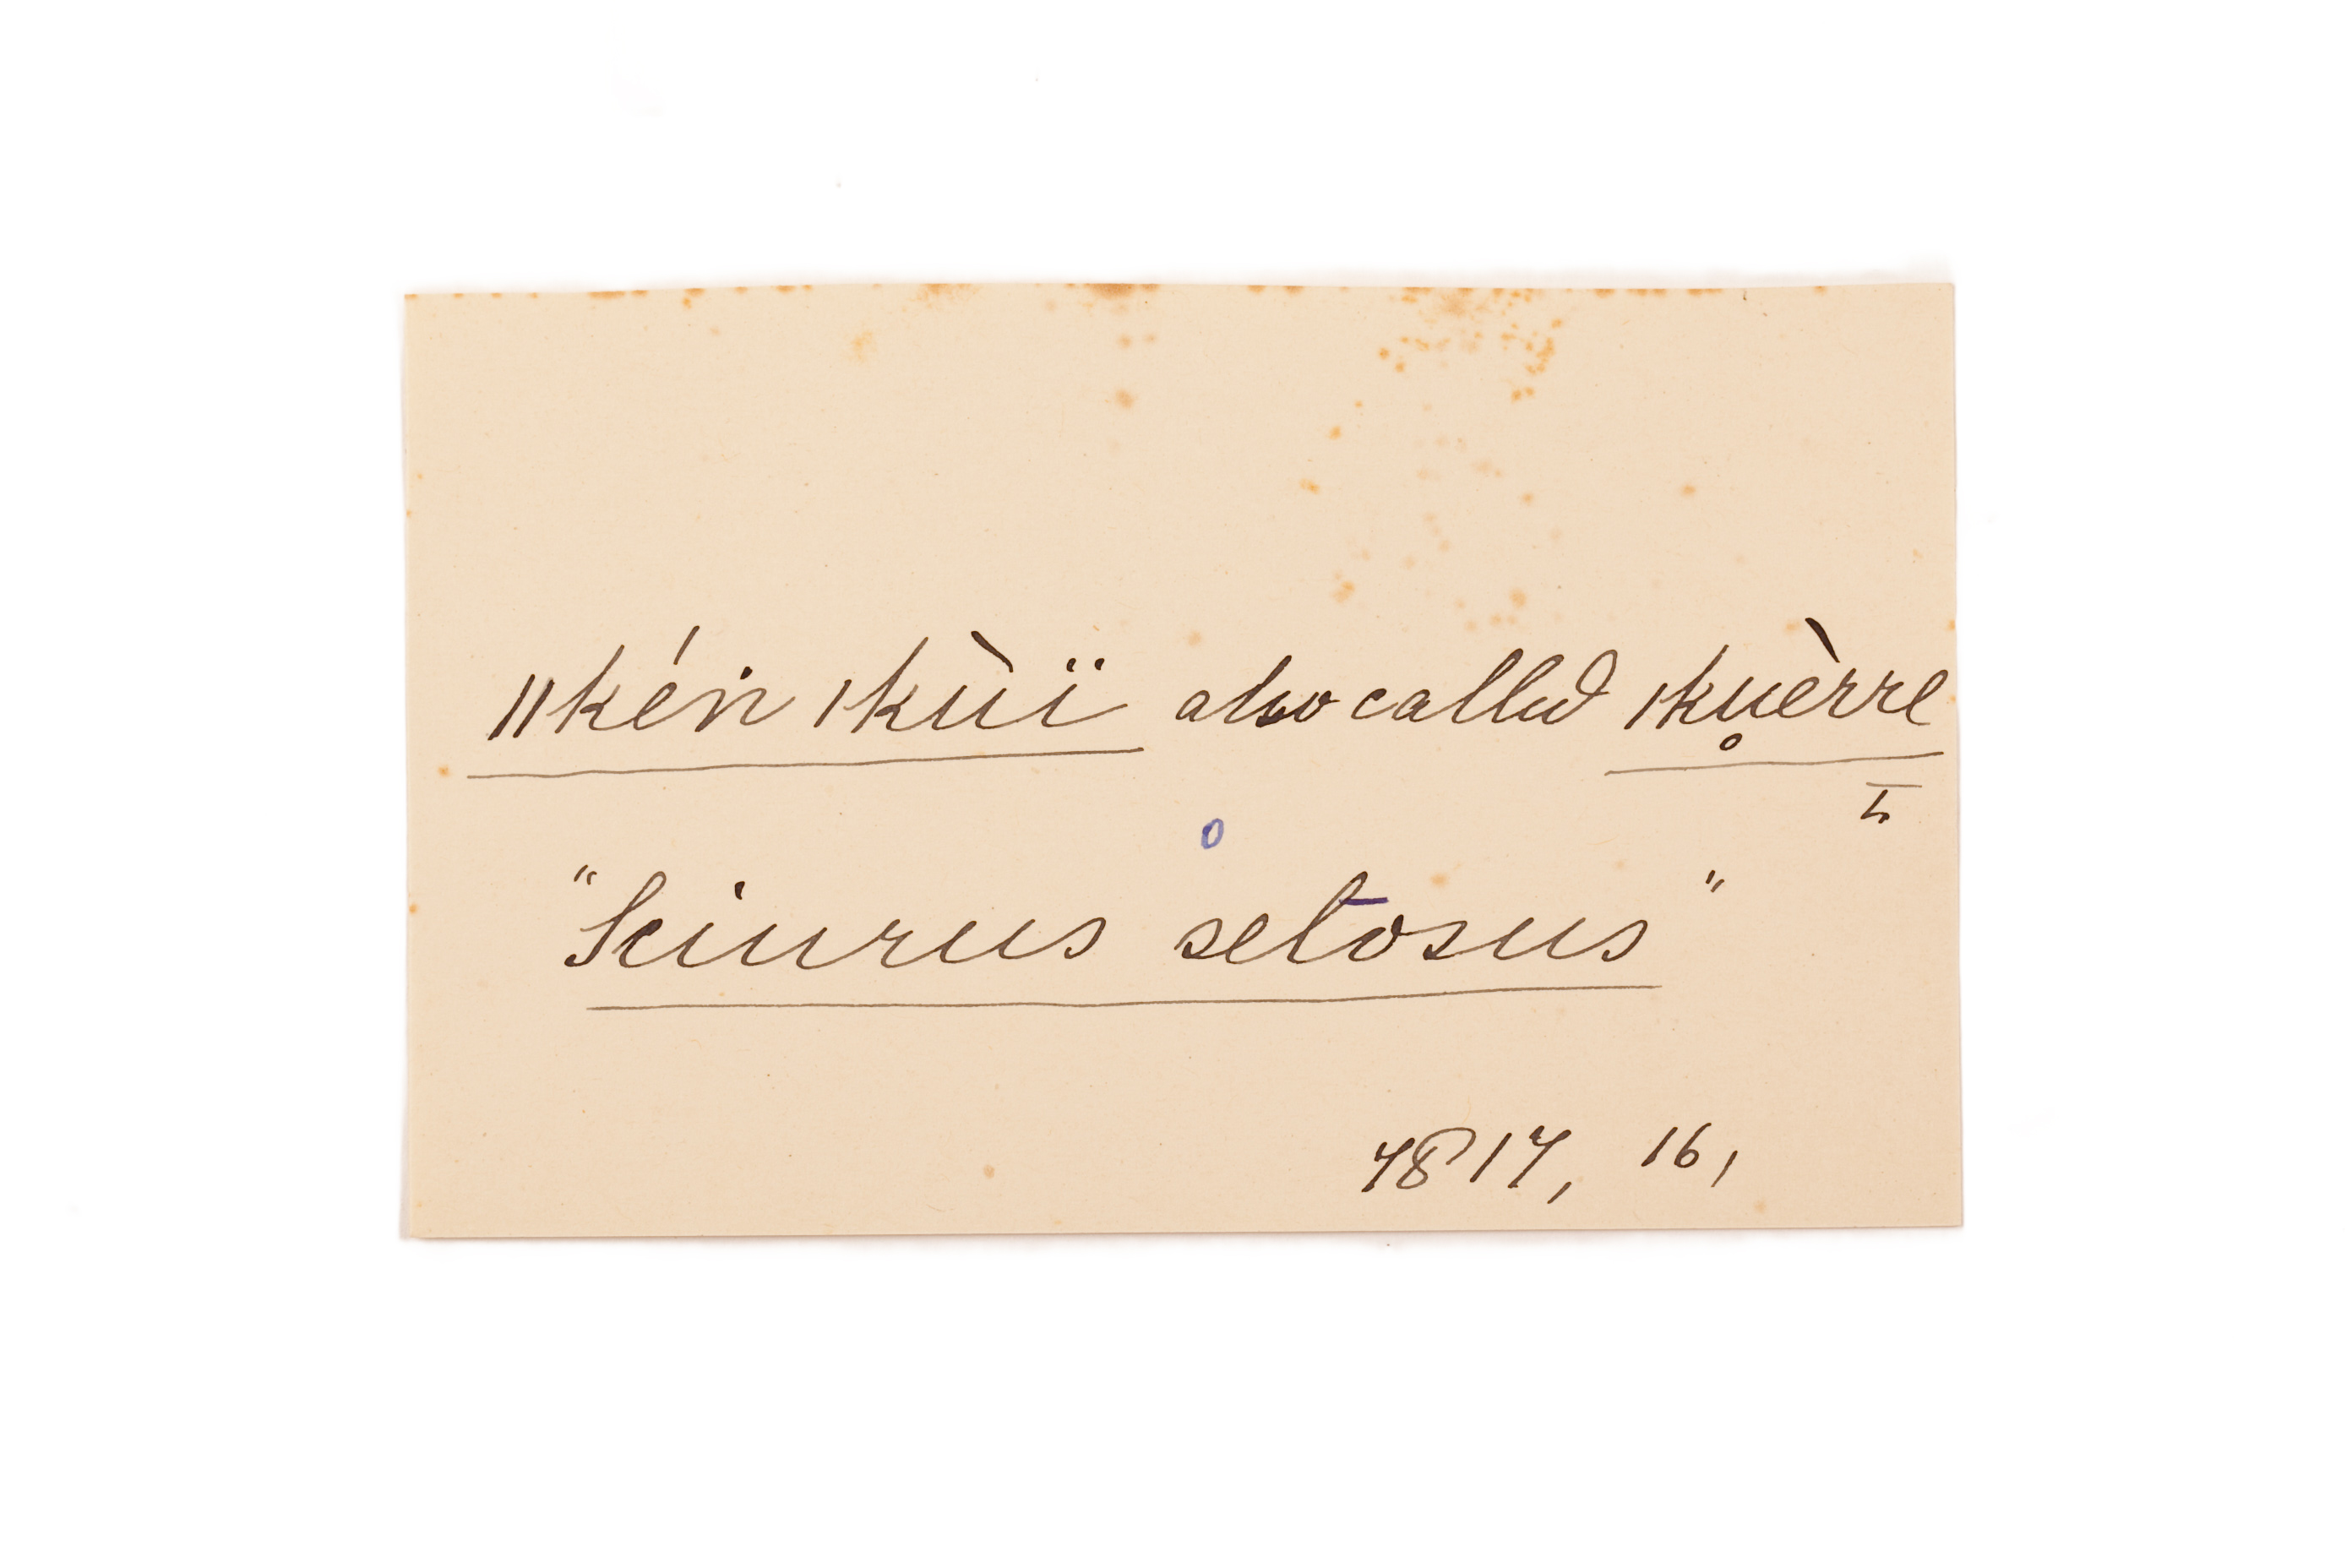 ǁkéṅ ǀkùï also called ǀku̥èrre
h
o
"Sciurus setosus"
4817, 16,